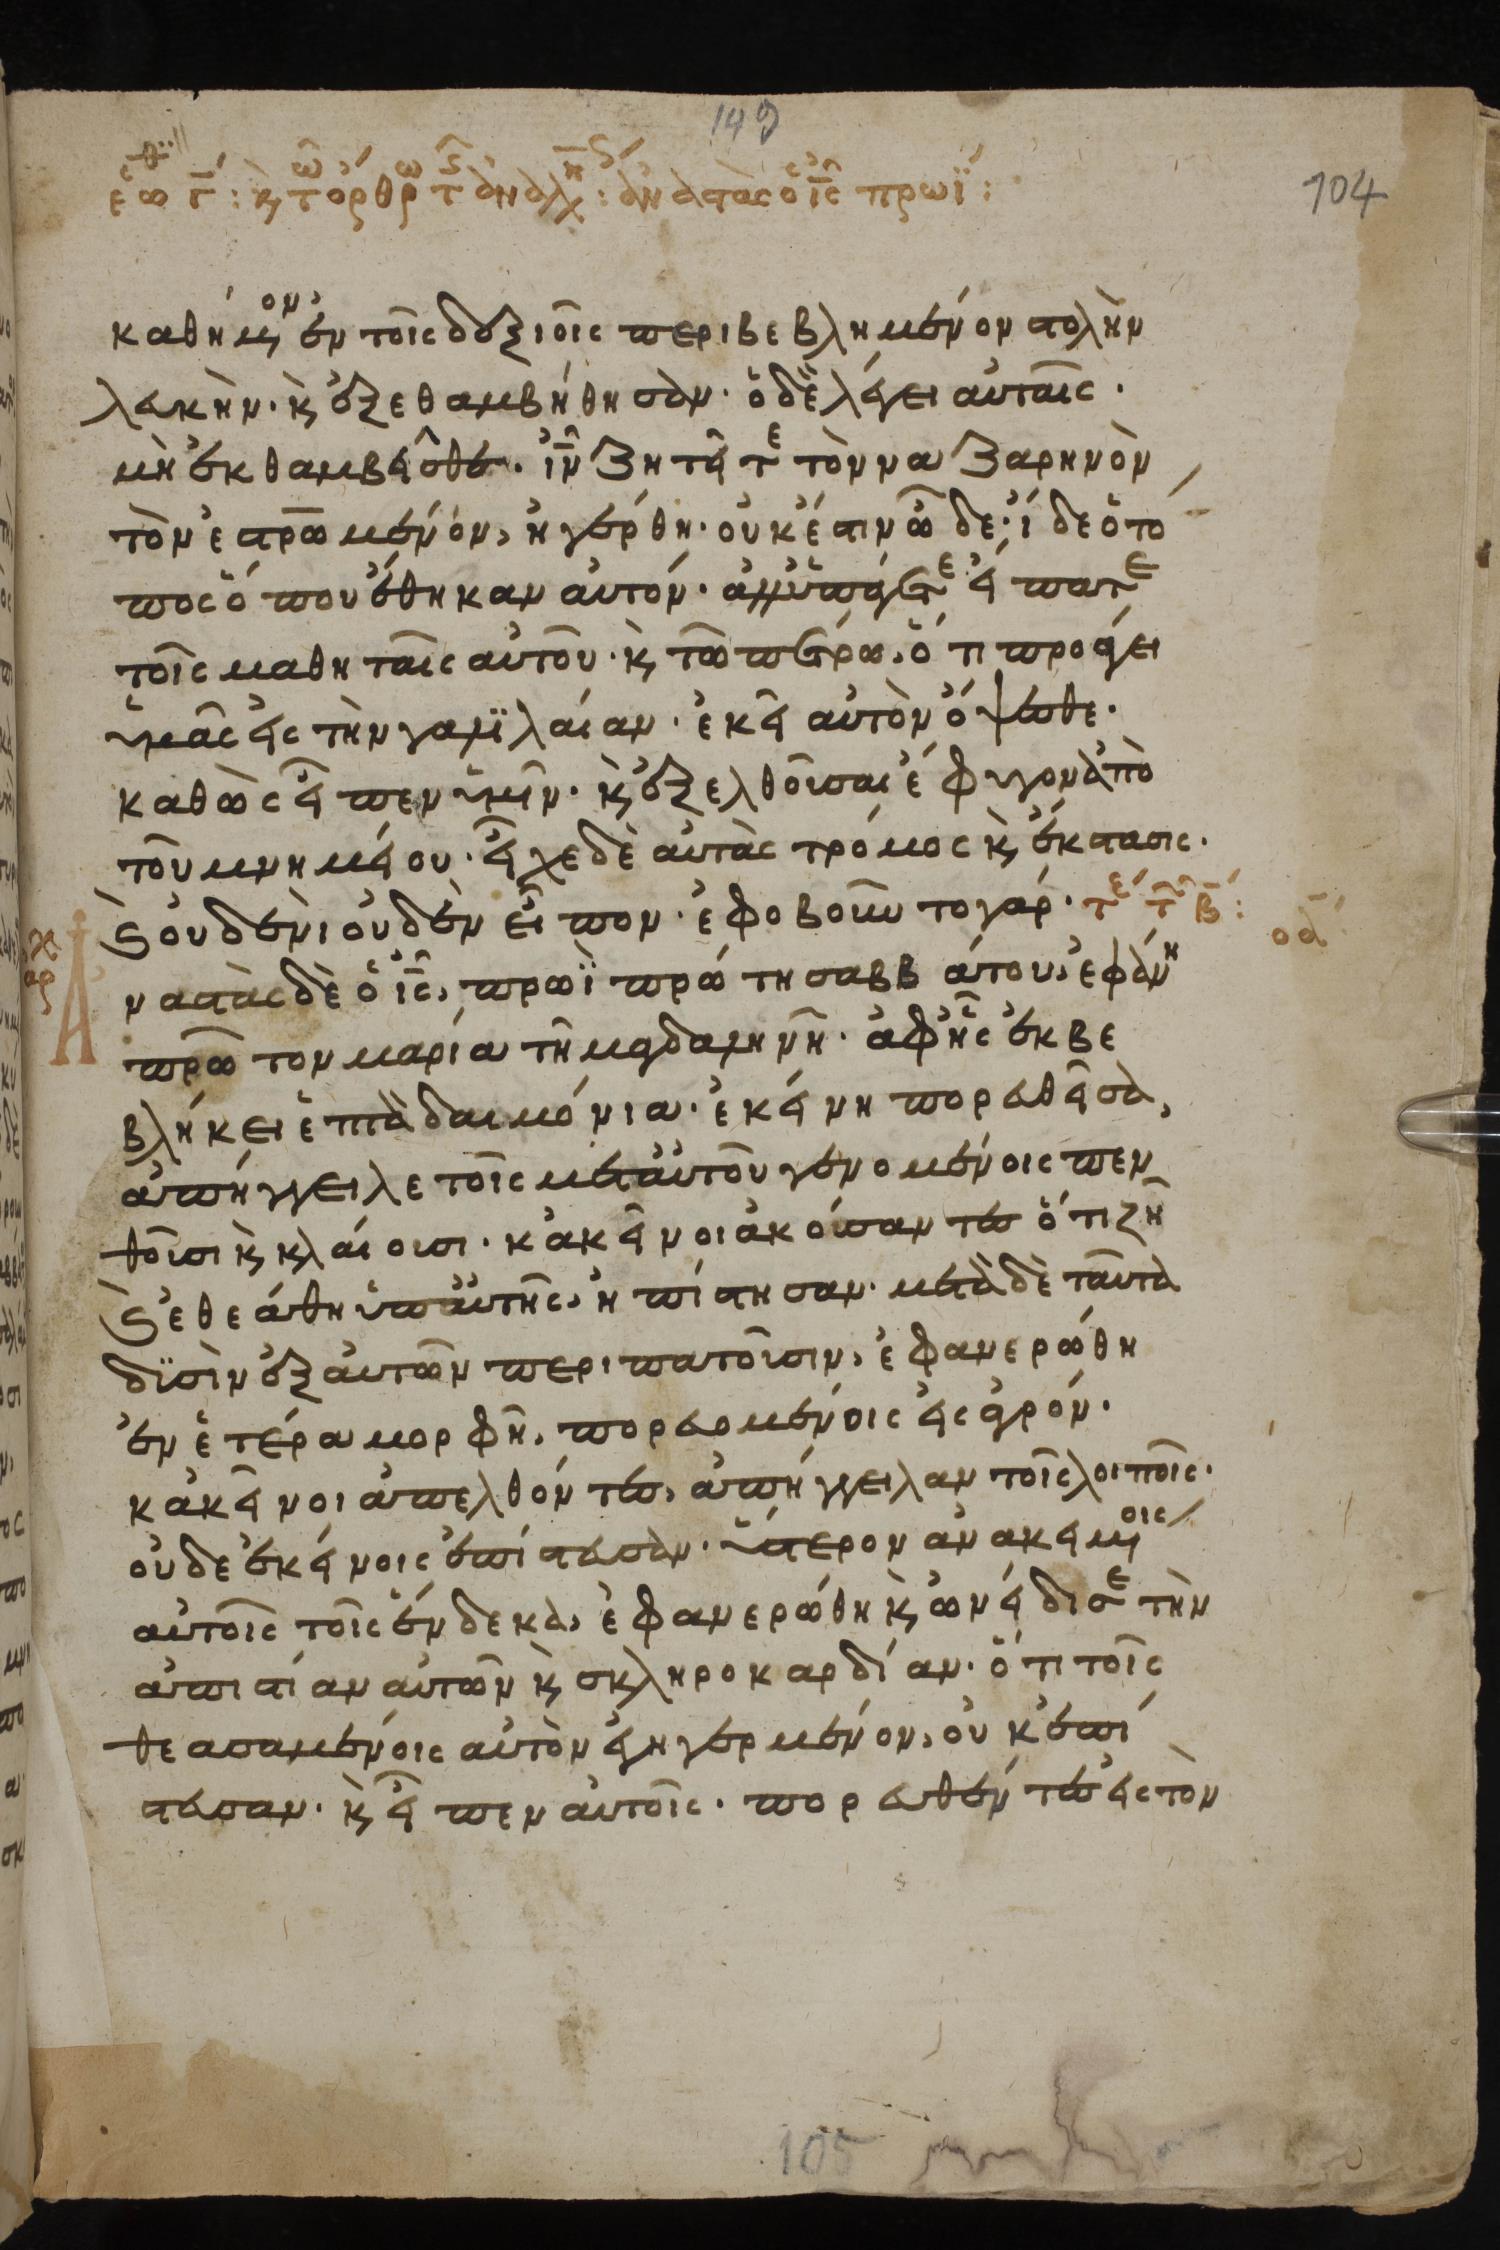 149
104
ἑωθ γ: κ τω ὀρθρω τς ἀναλη: ἀναστὰς ὁ ις πρωΐ:
καθήμενον ἐν τοῖς δεξιοῖς περιβεβλημένον στολὴν
λευκὴν· κ ἐξεθαμβήθησαν· ὁ δὲ λέγει αὐταῖς·
μὴ ἐκθαμβεῖσθε· ιν ζητεῖτε τὸν ναζαρηνὸν
τὸν ἐσταυρωμένον, ἠγέρθη· οὐκ ἔστιν ὧδε· ἴδε ὁ τό
πος ὅπου ἔθηκαν αὐτόν· ἀλλ' ὑπάγετε εἴπατε
τοῖς μαθηταῖς αὐτοῦ· κ τῶ πέτρω, ὅτι προάγει
ὑμᾶς εἰς τὴν γαλιλαίαν· ἐκεῖ αὐτὸν ὄψεσθε·
καθὼς εἶπεν ὑμῖν· κ ἐξελθοῦσαι ἔφυγον ἀπὸ
τοῦ μνημείου· εἶχε δὲ αὐτὰς τρόμος κ ἔκστασις·
κ οὐδενὶ οὐδὲν εἶπον· ἐφοβοῦντο γάρ· τε τ β:
οδ
αρ
Ἀ
ναστὰς δὲ ὁ ις, πρωῒ πρώτη σαββάτου, ἐφάνη
πρῶτον μαρία τῆ μαγδαληνῆ· ἀφ' ἧς ἐκβε
βλήκει ἑπτὰ δαιμόνια· ἐκείνη πορευθεῖσα,
ἀπήγγειλε τοῖς μετ' αὐτοῦ γενομένοις πεν
θοῦσι κ κλαίουσι· κἀκεῖνοι ἀκούσαντες ὅτι ζῆ
κ ἐθεάθη ὑπ' αὐτῆς, ἠπίστησαν· μετὰ δὲ ταῦτα
δυσὶν ἐξ αὐτῶν περιπατοῦσιν, ἐφανερώθη
ἐν ἑτέρα μορφῆ, πορευομένοις εἰς ἀγρόν·
κἀκεῖνοι ἀπελθόντες, ἀπήγγειλαν τοῖς λοιποῖς·
οὐδὲ ἐκείνοις ἐπίστευσαν· ὕστερον ἀνακειμένοις
αὐτοῖς τοῖς ἕνδεκα, ἐφανερώθη κ ὠνείδισε τὴν
ἀπιστίαν αὐτῶν κ σκληροκαρδίαν· ὅτι τοῖς
θεασαμένοις αὐτὸν ἐγηγερμένον, οὐκ ἐπί
στευσαν· κ εἶπεν αὐτοῖς· πορευθέντες εἰς τὸν
105